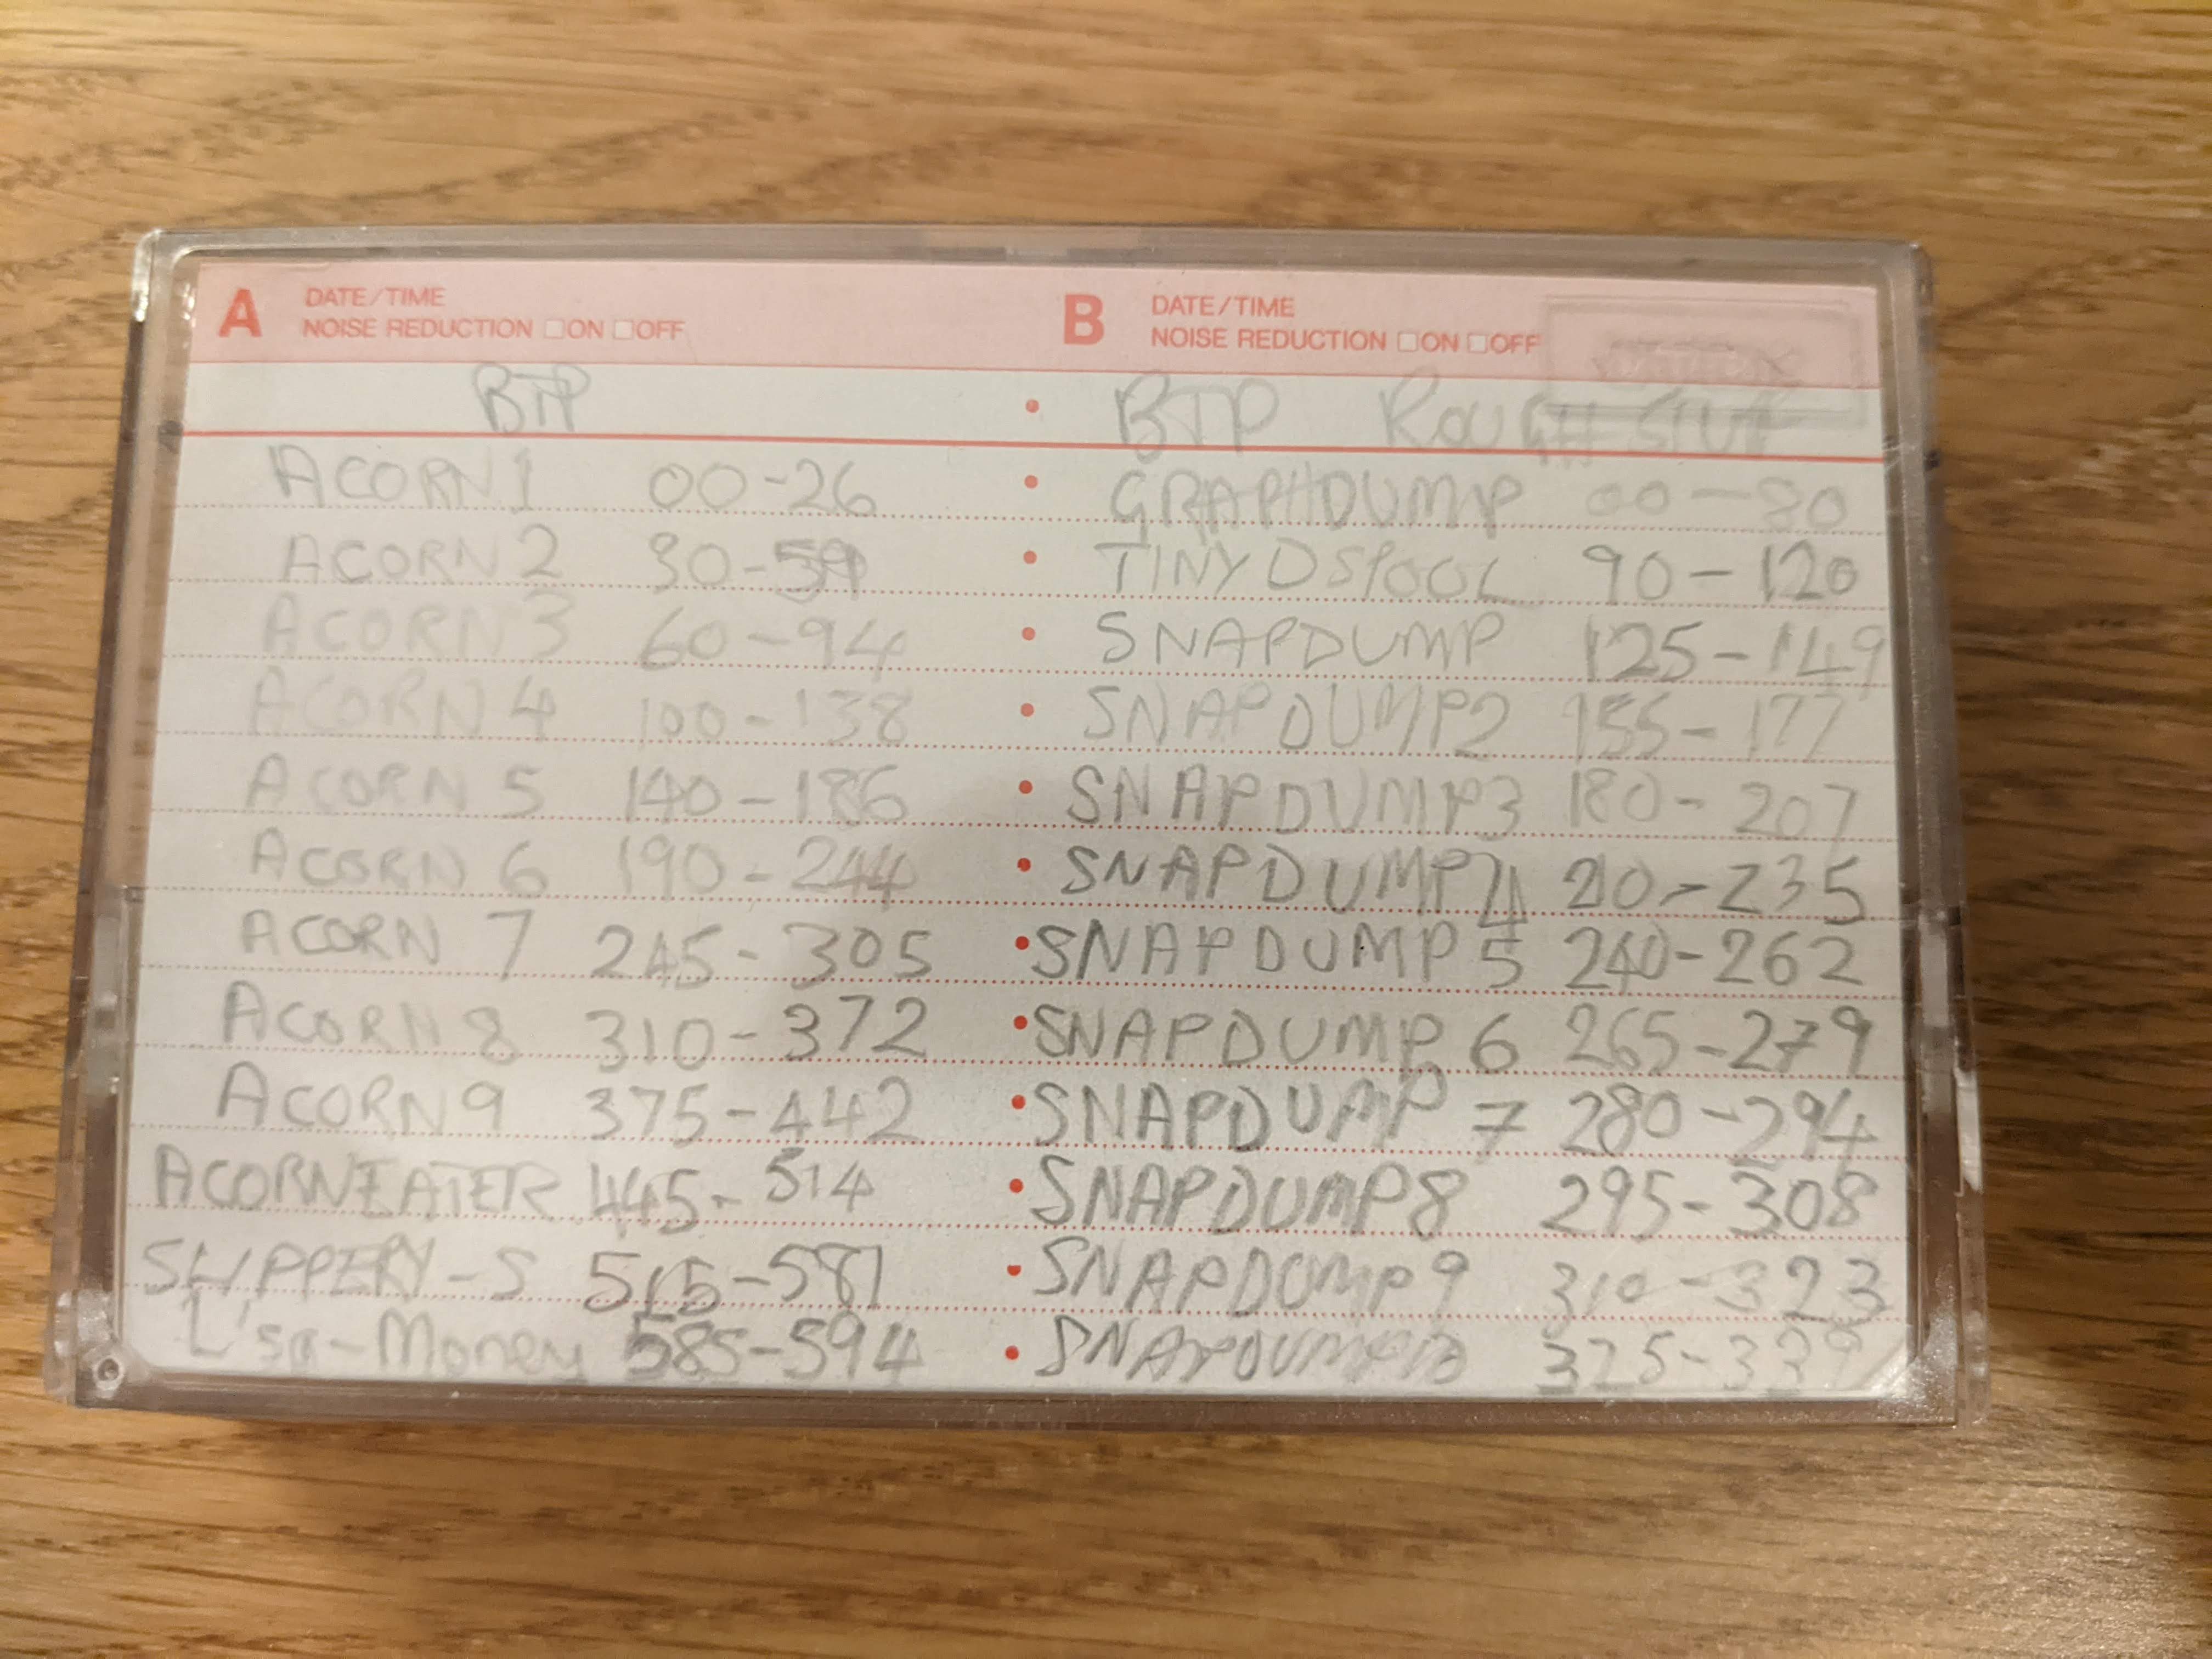 A DATE/TIME
NOISE REDUCTION ☐ON ☐OFF
BTP
ACORN 1 00-26
ACORN 2 30-59
ACORN 3 60-94
ACORN 4 100-138
ACORN 5 140-186
ACORN 6 190-244
ACORN 7 245-305
ACORN 8 310-372
ACORN 9 375-442
ACORNEATER 445-514
SLIPPERY-S 515-581
L'sa-Money 585-594
B DATE/TIME
NOISE REDUCTION ☐ON ☐OFF
BTP ROUGH STUF
GRAPHDUMP 00-80
TINYDSPOOL 90-120
SNAPDUMP 125-149
SNAPDUMP2 155-177
SNAPDUMP3 180-207
SNAPDUMP4 210-235
SNAPDUMP5 240-262
SNAPDUMP 6 265-279
SNAPDUMP 7 280-294
SNAPDUMP8 295-308
SNAPDUMP9 310-323
325-339